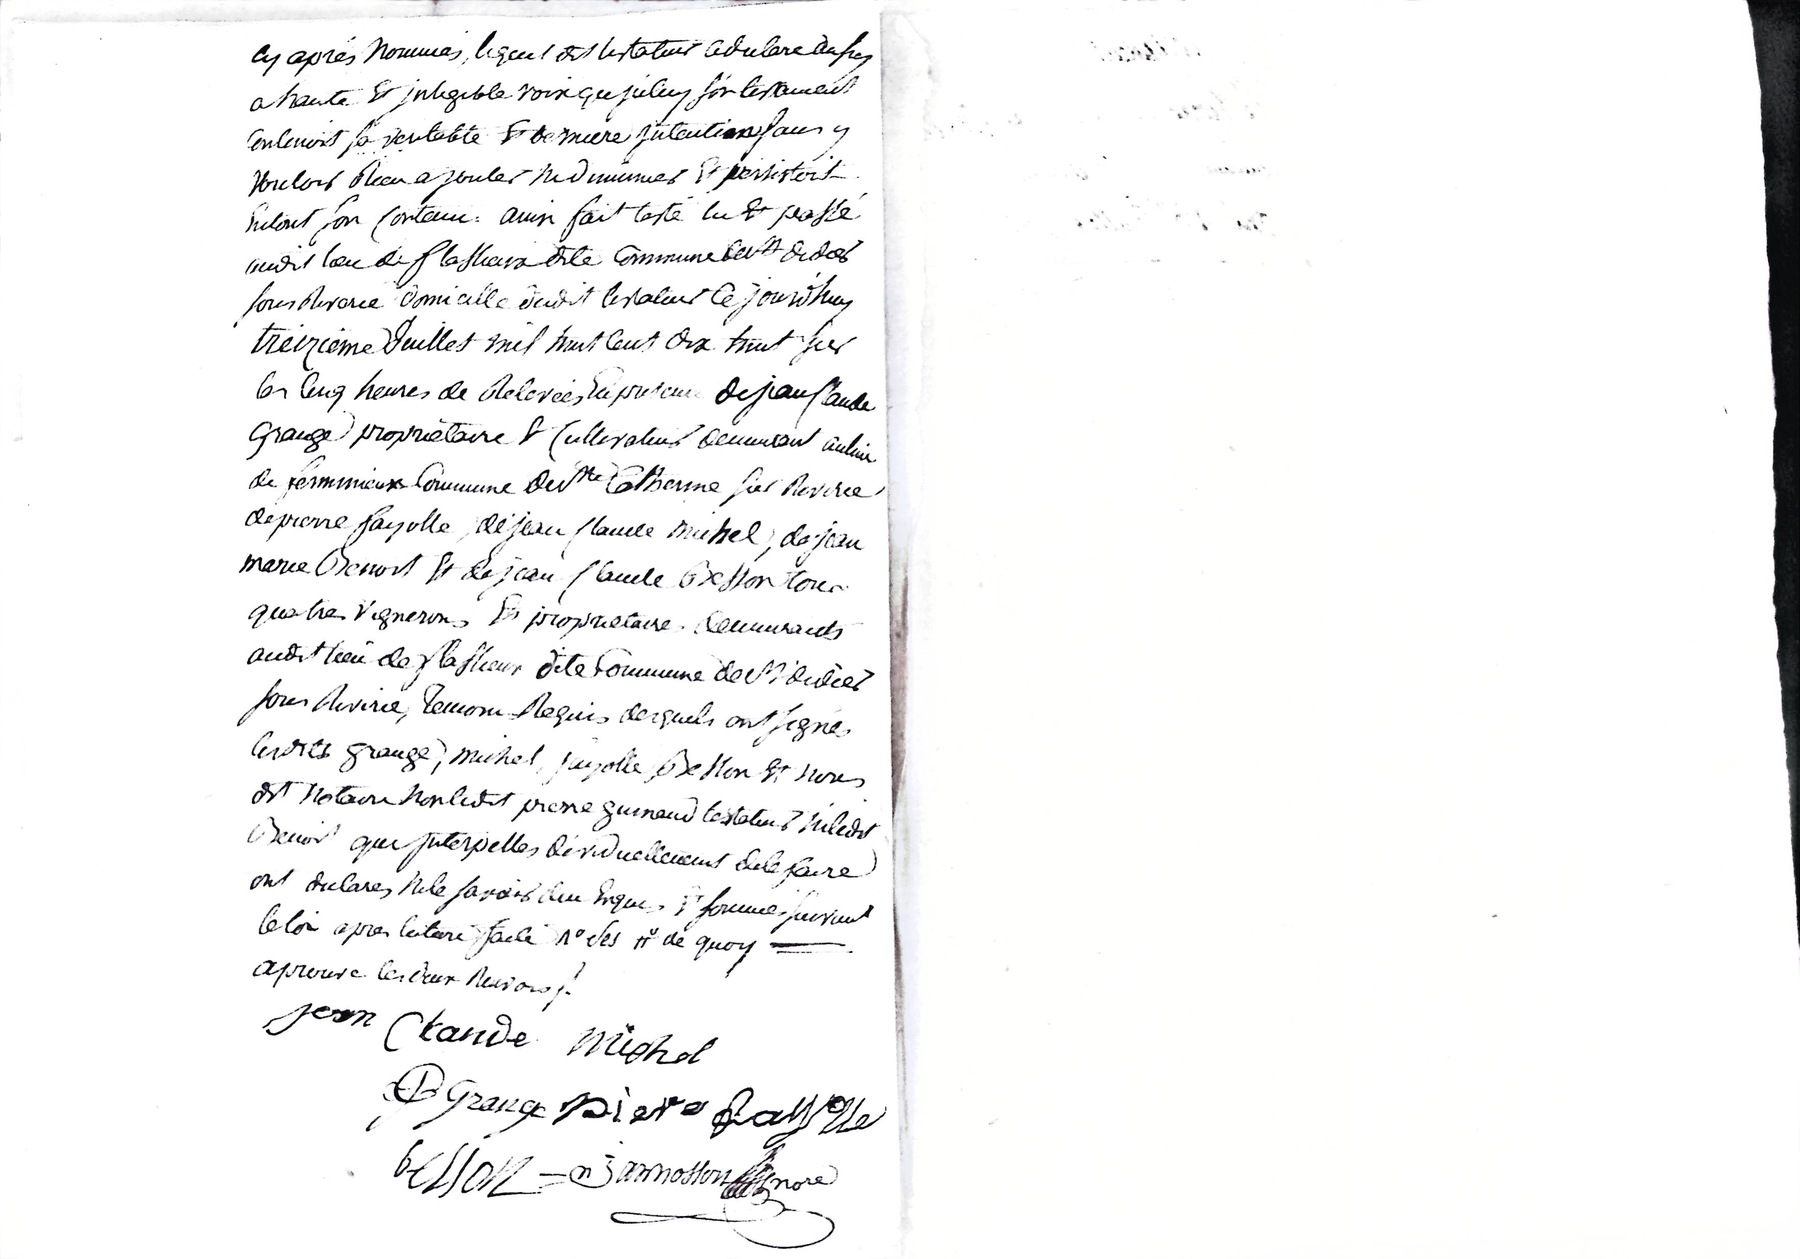 cy après nommés, lequel dit testateur a declare ensuy
a haute Et jnteligible voix que jceluy son testament
Contenoit sa veritable Et derniere jntention sans y
vouloir Rien ajouter ni diminuer Et persistoit
Entout son Contenu. ainsi fait testé lu Et passé
audit lieu de flassieux dite Commune de St didier
sous Riverie domicille dudit testateur Ce jourd'huy
treizieme Juillet mil huit Cent dix huit sur
les Cinq heures de Relevées En presence de jean Claude
Grange propriètaire Et Cultivateur demeurant au lieu
de Commune de Ste Catherine sur Riverie
de pierre fayolle, de jean Claude michel, de jean
marie Benoit Et de jean Claude Besson tous
quatres vignerons Et propriètaires demeurants
audit lieu de flassieux dite Commune de St didier
sous Riverie, Temoins Requis desquels ont signés
lesdits grange, michel, fayolle Besson Et nous
dit Notaire Non ledit pierre guinand testateur Ni ledit
Benoit que jnterpelles dividuellement de le faire
ont declarés Ne le savoir du Enquis Et sommés suivant
la loi apres lecture faite de quoy
aprouvé les deux Renvois /.
jean Claude Michel
Grange pierre fayolle
besson nore